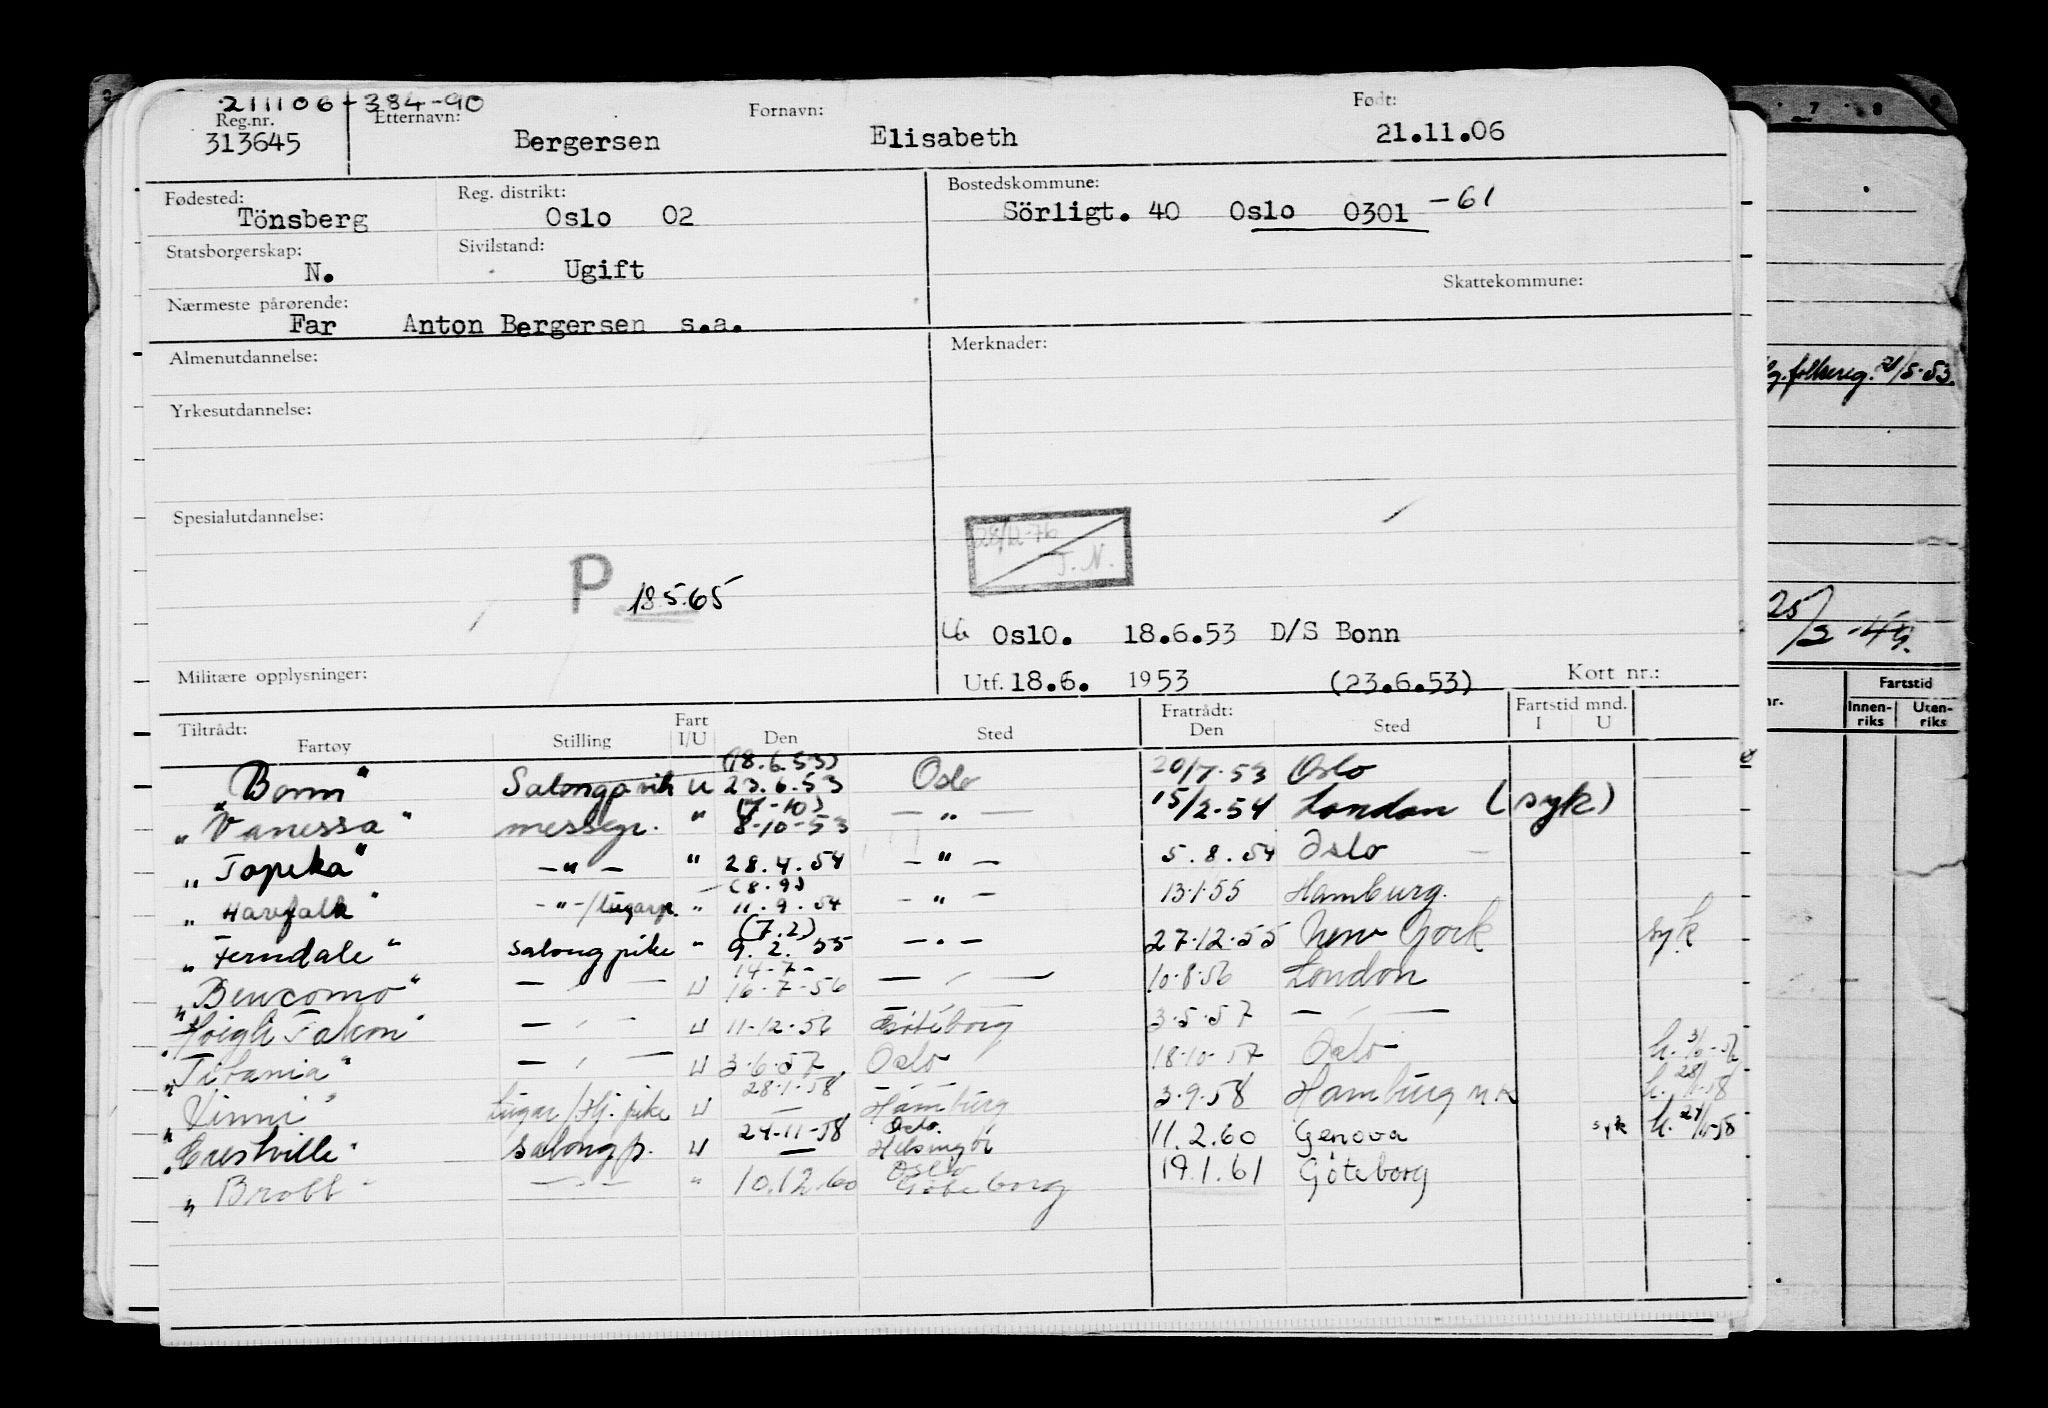 211106-384-90
Reg.nr. Etternavn: Fornavn: Født:
313645 Bergersen Elisabeth 21.11.06
Fødested: Reg. distrikt: Bostedskommune:
Tönsberg Oslo 02 Sörligt. 40 Oslo 0301 -61
Statsborgerskap: Sivilstand:
N. Ugift
Skattekommune:
Nærmeste pårørende:
Far Anton Bergersen s.a.
Almenutdannelse: Merknader:
Yrkesutdannelse:
Spesialutdannelse:
28/12-76
T. N.
P 18.5.65
Oslo. 18.6.53 D/S Bonn
Militære opplysninger: Utf. 18.6. 1953 (23.6.53) Kort nr.:
Tiltrådt: Fratrådt: Fartstid mnd.
Fartøy Stilling Fart I/U Den Sted Den Sted I U
(18.6.53)
"Bonn" U 23.6.53 Oslo 20/7-53 Oslo
(7-10)
"Vanessa" messegr. " 8-10-53 — " — 15/2-54 London (syk)
"Topeka" — " — " 28.4.54 — " — 5.8.54 Oslo
(8.9)
"Havfalk" - " -/lugarp. " 11.9.54 - " - 13.1.55 Hamburg.
(7.2)
"Ferndale" salongpike " 9.2.55 — " — 27.12.55 New York syk
14-7-
"Bencomo" — " — U 16-7-56 — " — 10.8.56 London
"Höegh Falcon" — " — U 11-12-56 Göteborg 3.5.57 — " —
"Titania" — " — U 3.6.57 Oslo 18-10-57 Oslo
"Vinni" Lugar/Hj. pike U 28.1.58 Hamburg 3.9.58 Hamburg
"Crestville" salongp. U 24-11-58 Oslo. Helsingör 11.2.60 Genova syk
"Brott" — " — " 10.12.60 Oslo Göteborg 19.1.61 Göteborg
7 8
folkereg. 21/5-53.
25/2-49.
nr. Fartstid
Innenriks Utenriks